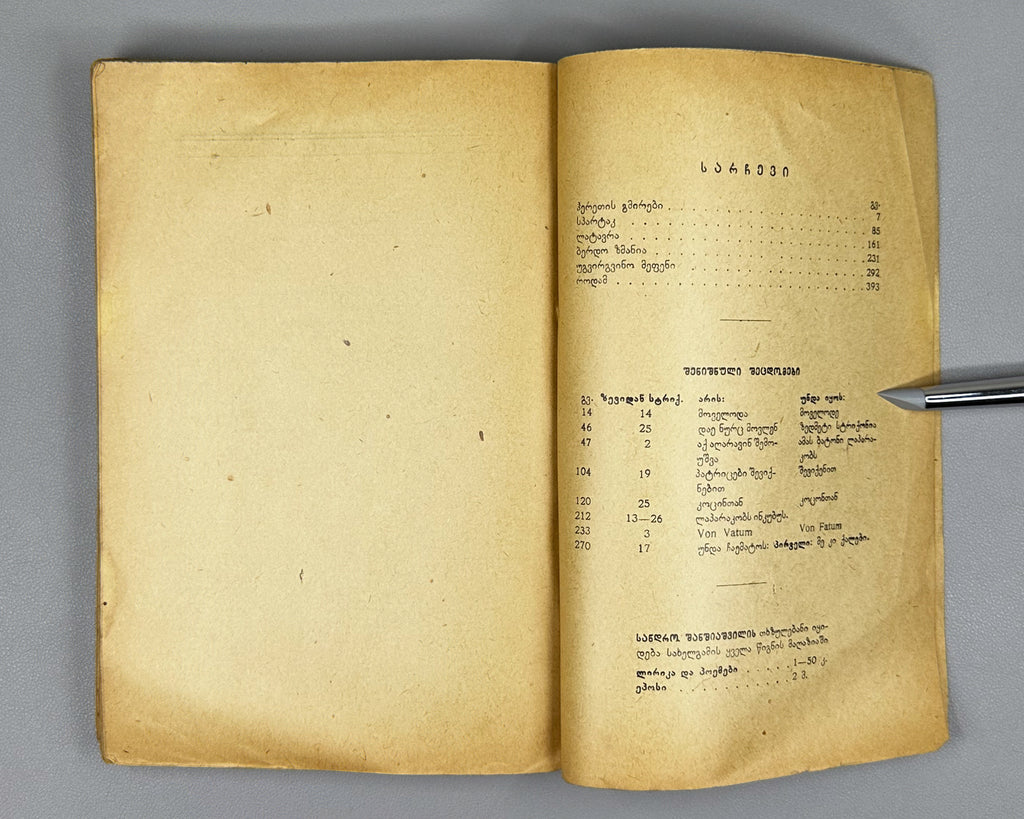 სარჩევი
გვ.
ჰერეთის გმირები . . . . . . . . . . . . . . . 7
სპარტაკ . . . . . . . . . . . . . . . . . . . 85
ლატავრა . . . . . . . . . . . . . . . . . . . 161
ბერდო ზმანია . . . . . . . . . . . . . . . . 231
უგვირგვინო მეფენი . . . . . . . . . . . . . . 292
როდამ . . . . . . . . . . . . . . . . . . . 393
შენიშნული შეცდომები
გვ. ზევიდან სტრიქ. არის: უნდა იყოს:
14 14 მოველოდა მოველოდე
46 25 დაე ნურც მოვლენ ზედმეტი სტრიქონია
47 2 აქ აღარავინ შემო- ამას ბატონი ლაპარა-
უშვა კობს
104 19 პატრიცები შევიქ- შევიქენით
ნებით
120 25 კოცინთან კოცონთან
212 13—26 ლაპარაკობს ინკუბუს.
233 3 Von Vatum Von Fatum
270 17 უნდა ჩაემატოს: პირველი: მე კი ქალები.
სანდრო შანშიაშვილის თხზულებანი იყი-
დება სახელგამის ყველა წიგნის მაღაზიაში
ლირიკა და პოემები . . . . . 1—50 კ.
ეპოსი . . . . . . . . . . . 2 მ.